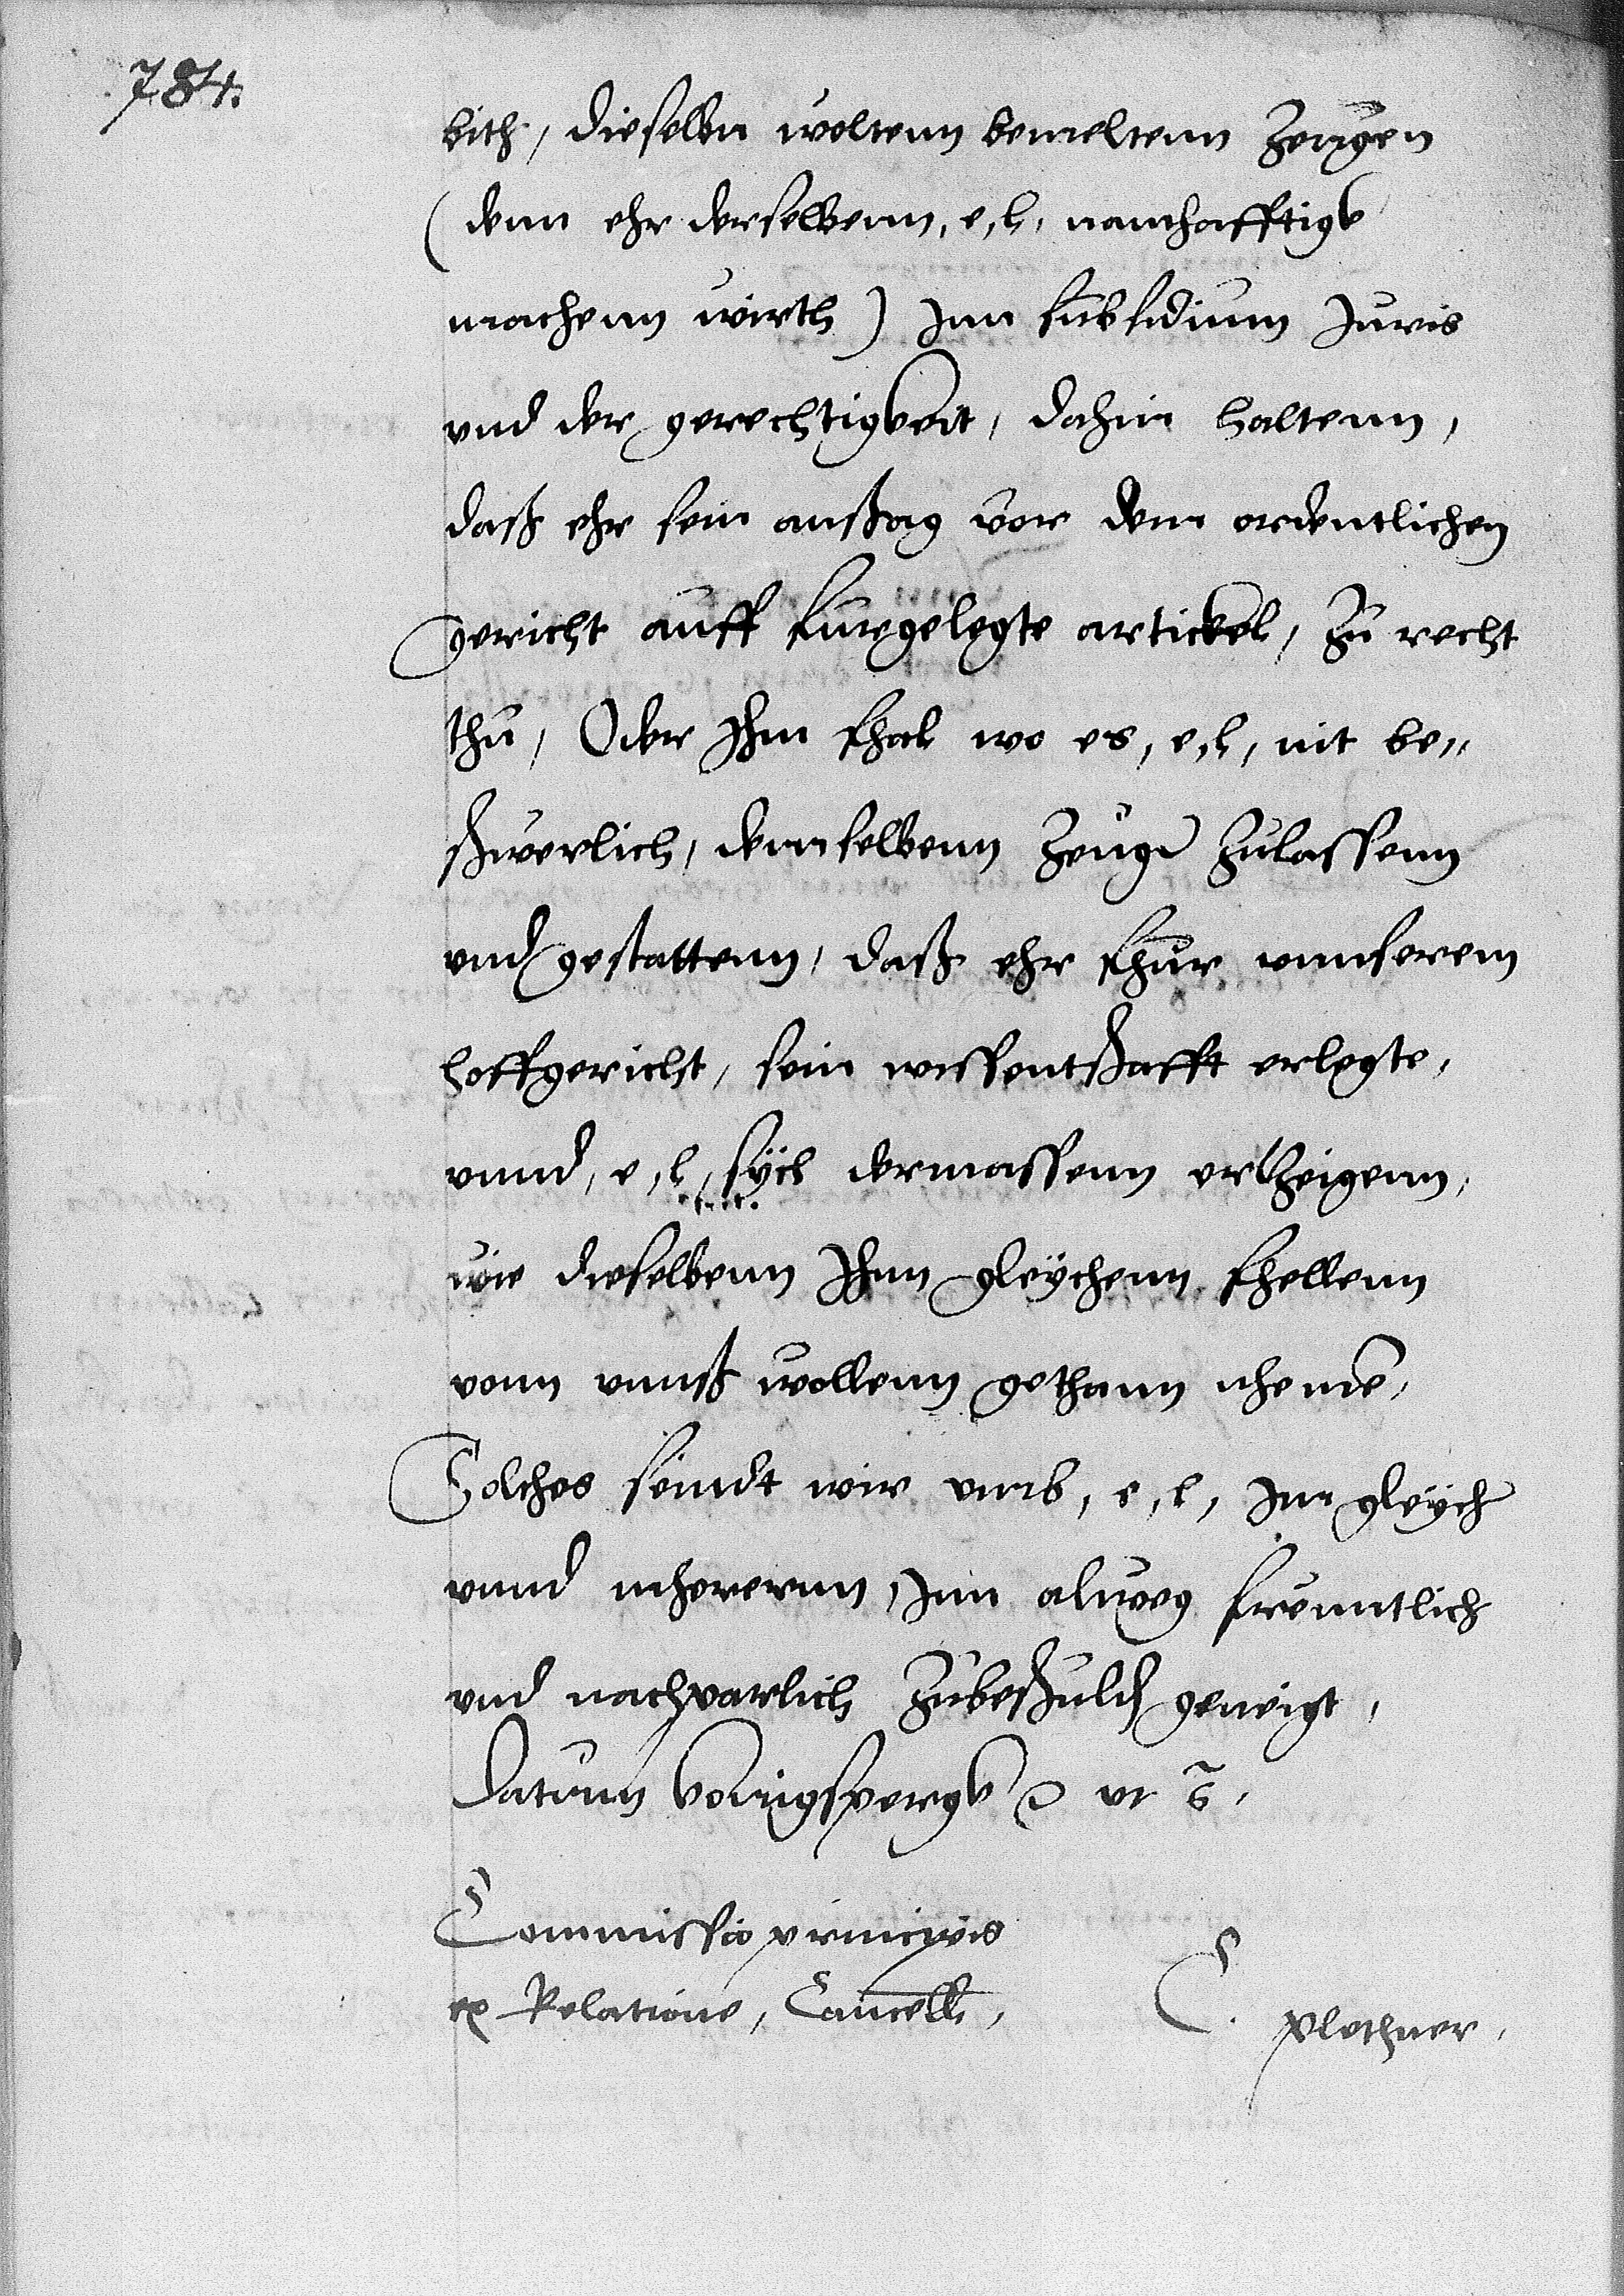 784.
bith, dieselbn woltenn bemeltenn Zeugen
(denn ehr derselbenn, e, l, namhafftigk
machenn wirth) Inn subsidium Juris
und der gerechtigkeit, dahin haltenn,
daß ehr sein außag vor dem ordentlichen
gericht auff furgelegte artickel, zu recht
thu, Oder Ihm fhal wo es, e, l, nit be„
schwerlich, demselbenn Zeuge zulassenn
und gestattenn, daß ehr fhur unnserem
hoffgericht, sein wissentschafft erlegte,
unnd, e, l, sych dermassenn ertzeigenn,
wie dieselbenn Ihnn gleychenn fhellenn
vonn unnß wollenn gethann nheme,
Solches seindt wir umb, e, l, Inn gleych
unnd mhererem, Inn alweg freuntlich
und nachparlich zubeschuld geneigt,
Datum konigspergk ut s.
Commissio principis
ex Relatione, Cancell,
C. plethner,